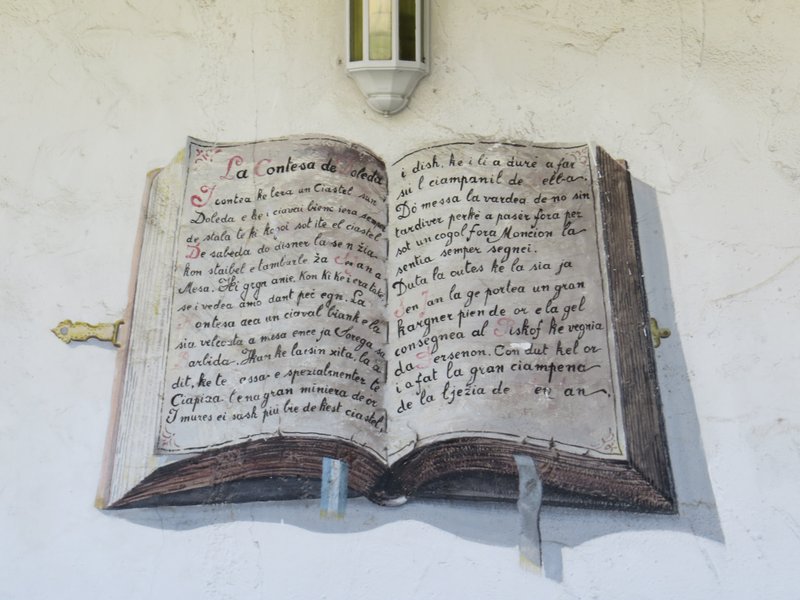 La Contesa de Doleda
I contea ke lera un Ciastel sun
Doleda e ke i ciavai bienc iera semper
de stala te ki kojoi sot ite el ciastel
De sabeda do disner la se n žia
kon staibel e tamburle ža Jen an a
Mesa. Ki grgn anie, kon ki ke i era take,
se i vedea amo dant peč egn. La
Contesa aea un ciaval biank e la
sia velocota a mesa ence ja Soregà sa
Parlida. Ikan ke laisin xita, la a
dit, ke te essa e spezialmenter te
Ciapiza l'ena gran miniera de or
I mures ei sask piú bie de kest ciastel,
i disk, ke i li a duré a far
sú l ciampanil de elba.
Dò messa la vardea de no sin
tardiver perkè a pasèr fora per
sot un cogol fora Moncion la
sentia semper segnei.
Duta la outes ke la sia ja
Jen Jan la ge portea un gran
kargner pien de or e la gel
consegnea al Piskof ke vegnia
da Persenon. Con dut kel or
i a fat la gran ciampena
de la ljezia de en an